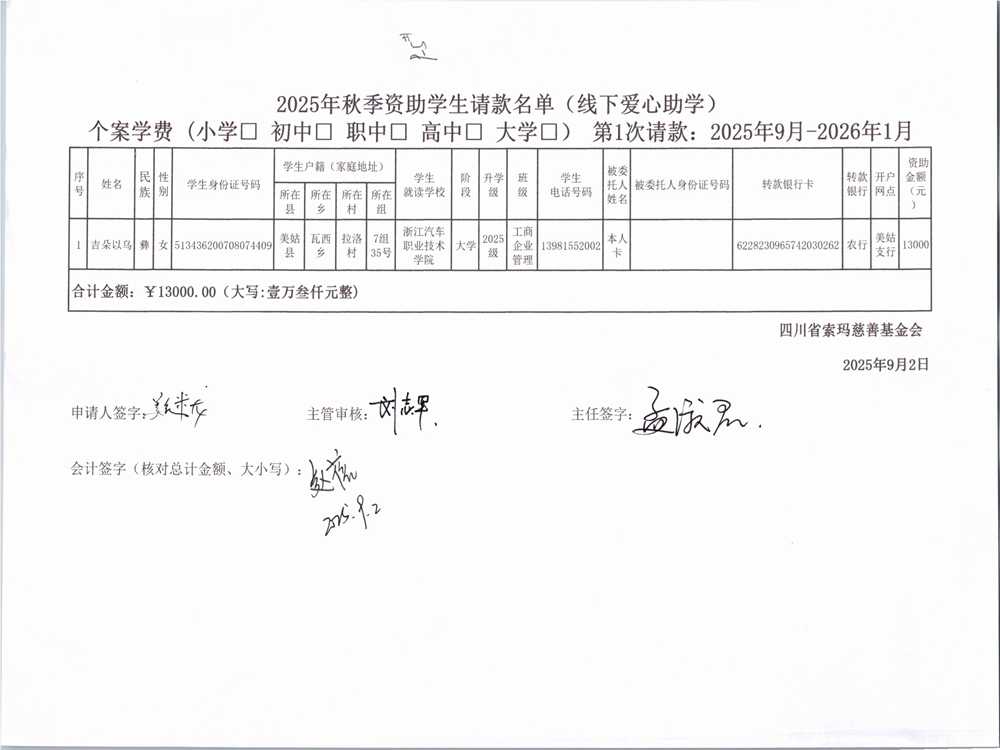 2025年秋季资助学生请款名单（线下爱心助学）
个案学费（小学□ 初中□ 职中□ 高中□ 大学□） 第1次请款：2025年9月-2026年1月
序号 姓名 民族 性别 学生身份证号码 学生户籍（家庭地址） 学生就读学校 阶段 升学级 班级 学生电话号码 被委托人姓名 被委托人身份证号码 转款银行卡 转款银行 开户网点 资助金额（元）
所在县 所在乡 所在村 所在组
1 吉朵以乌 彝 女 513436200708074409 美姑县 瓦西乡 拉洛村 7组35号 浙江汽车职业技术学院 大学 2025级 工商企业管理 13981552002 本人卡 6228230965742030262 农行 美姑支行 13000
合计金额：￥13000.00（大写:壹万叁仟元整）
四川省索玛慈善基金会
2025年9月2日
申请人签字： 主管审核： 主任签字：
会计签字（核对总计金额、大小写）：
2025.9.2